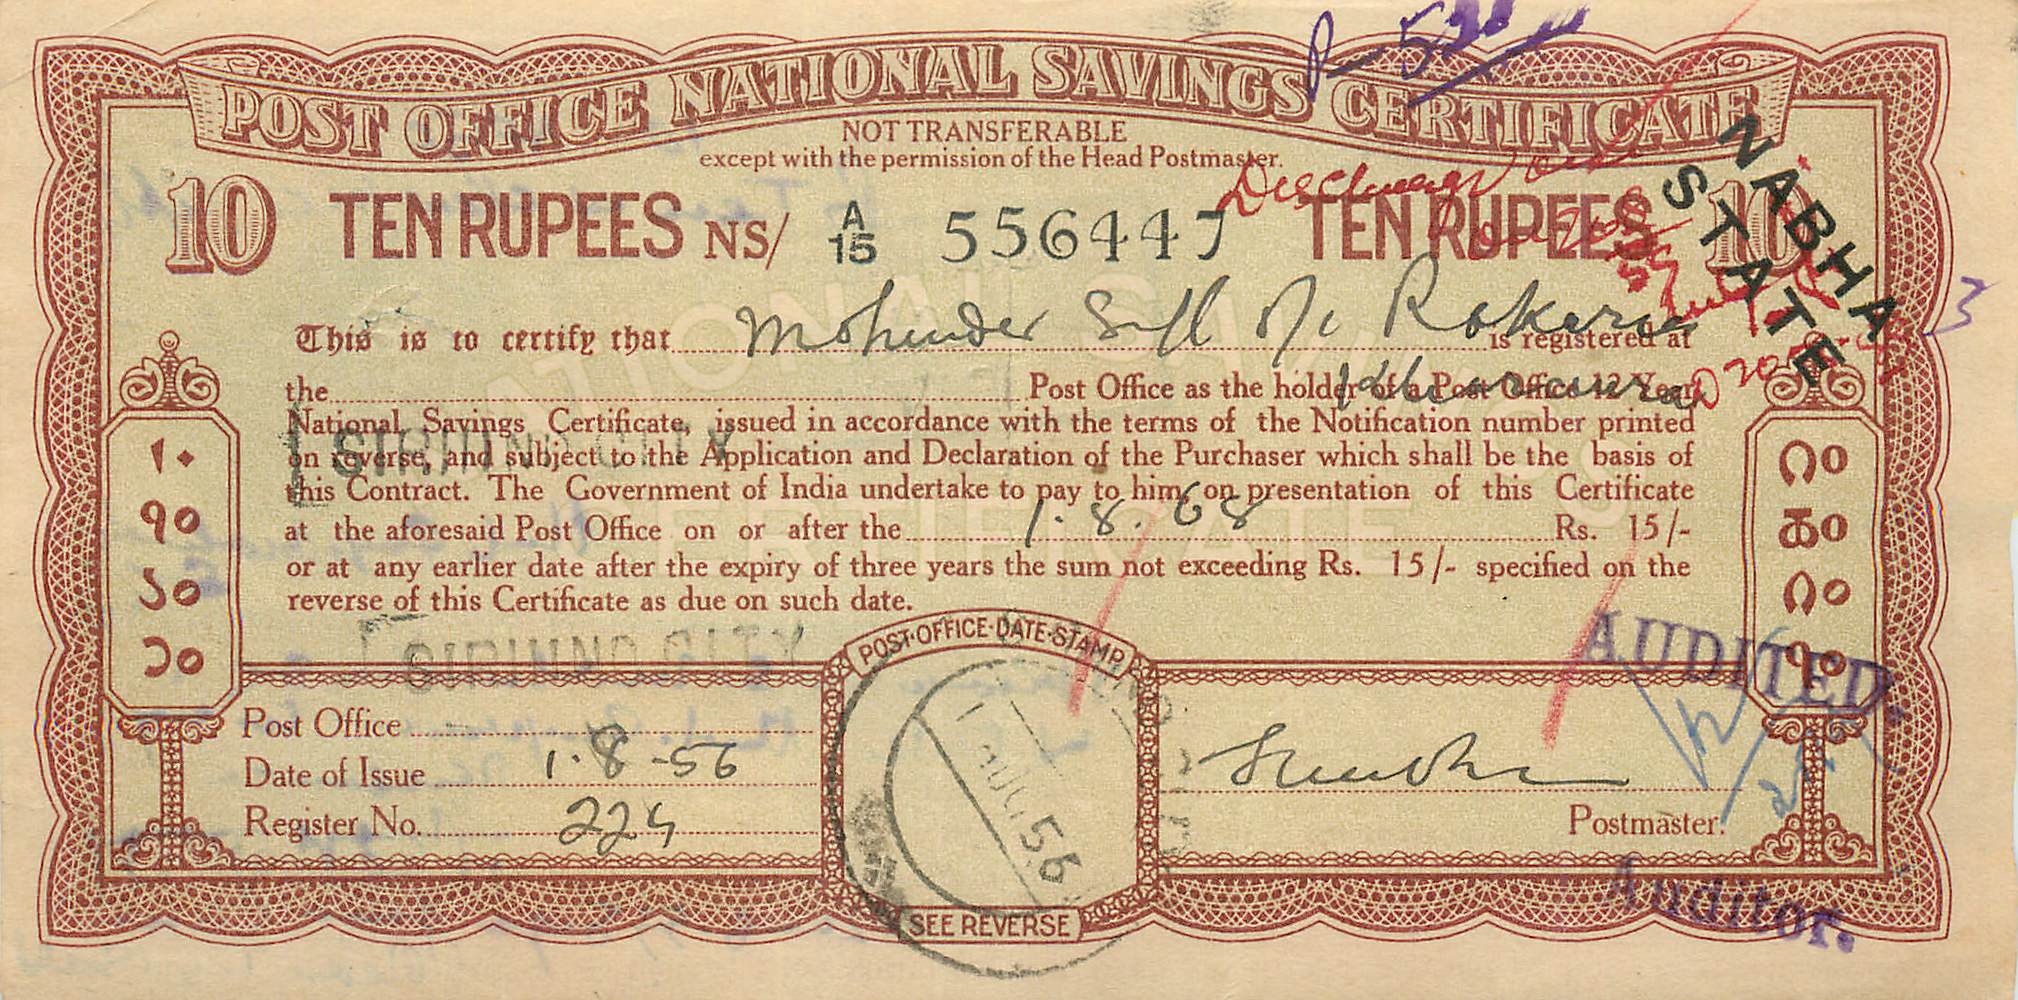 POST OFFICE NATIONAL SAVINGS CERTIFICATE
NOT TRANSFERABLE
except with the permission of the Head Postmaster.
10 TEN RUPEES NS/ A/15 556447 TEN RUPEES 10
NABHA STATE
This is to certify that Mohinder is registered at
the Post Office as the holder of a Post Office 12-Year
National Savings Certificate, issued in accordance with the terms of the Notification number printed
on reverse, and subject to the Application and Declaration of the Purchaser which shall be the basis of
this Contract. The Government of India undertake to pay to him on presentation of this Certificate
at the aforesaid Post Office on or after the 1.8.68 Rs. 15/-
or at any earlier date after the expiry of three years the sum not exceeding Rs. 15/- specified on the
reverse of this Certificate as due on such date.
SIRHIND CITY
SIRHIND CITY
۱۰
१०
১০
૧૦
POST·OFFICE·DATE·STAMP
1 AUG. 56
AUDITED.
Post Office
Date of Issue 1.8-56
Register No. 224
Postmaster.
SEE REVERSE
Auditor.
3